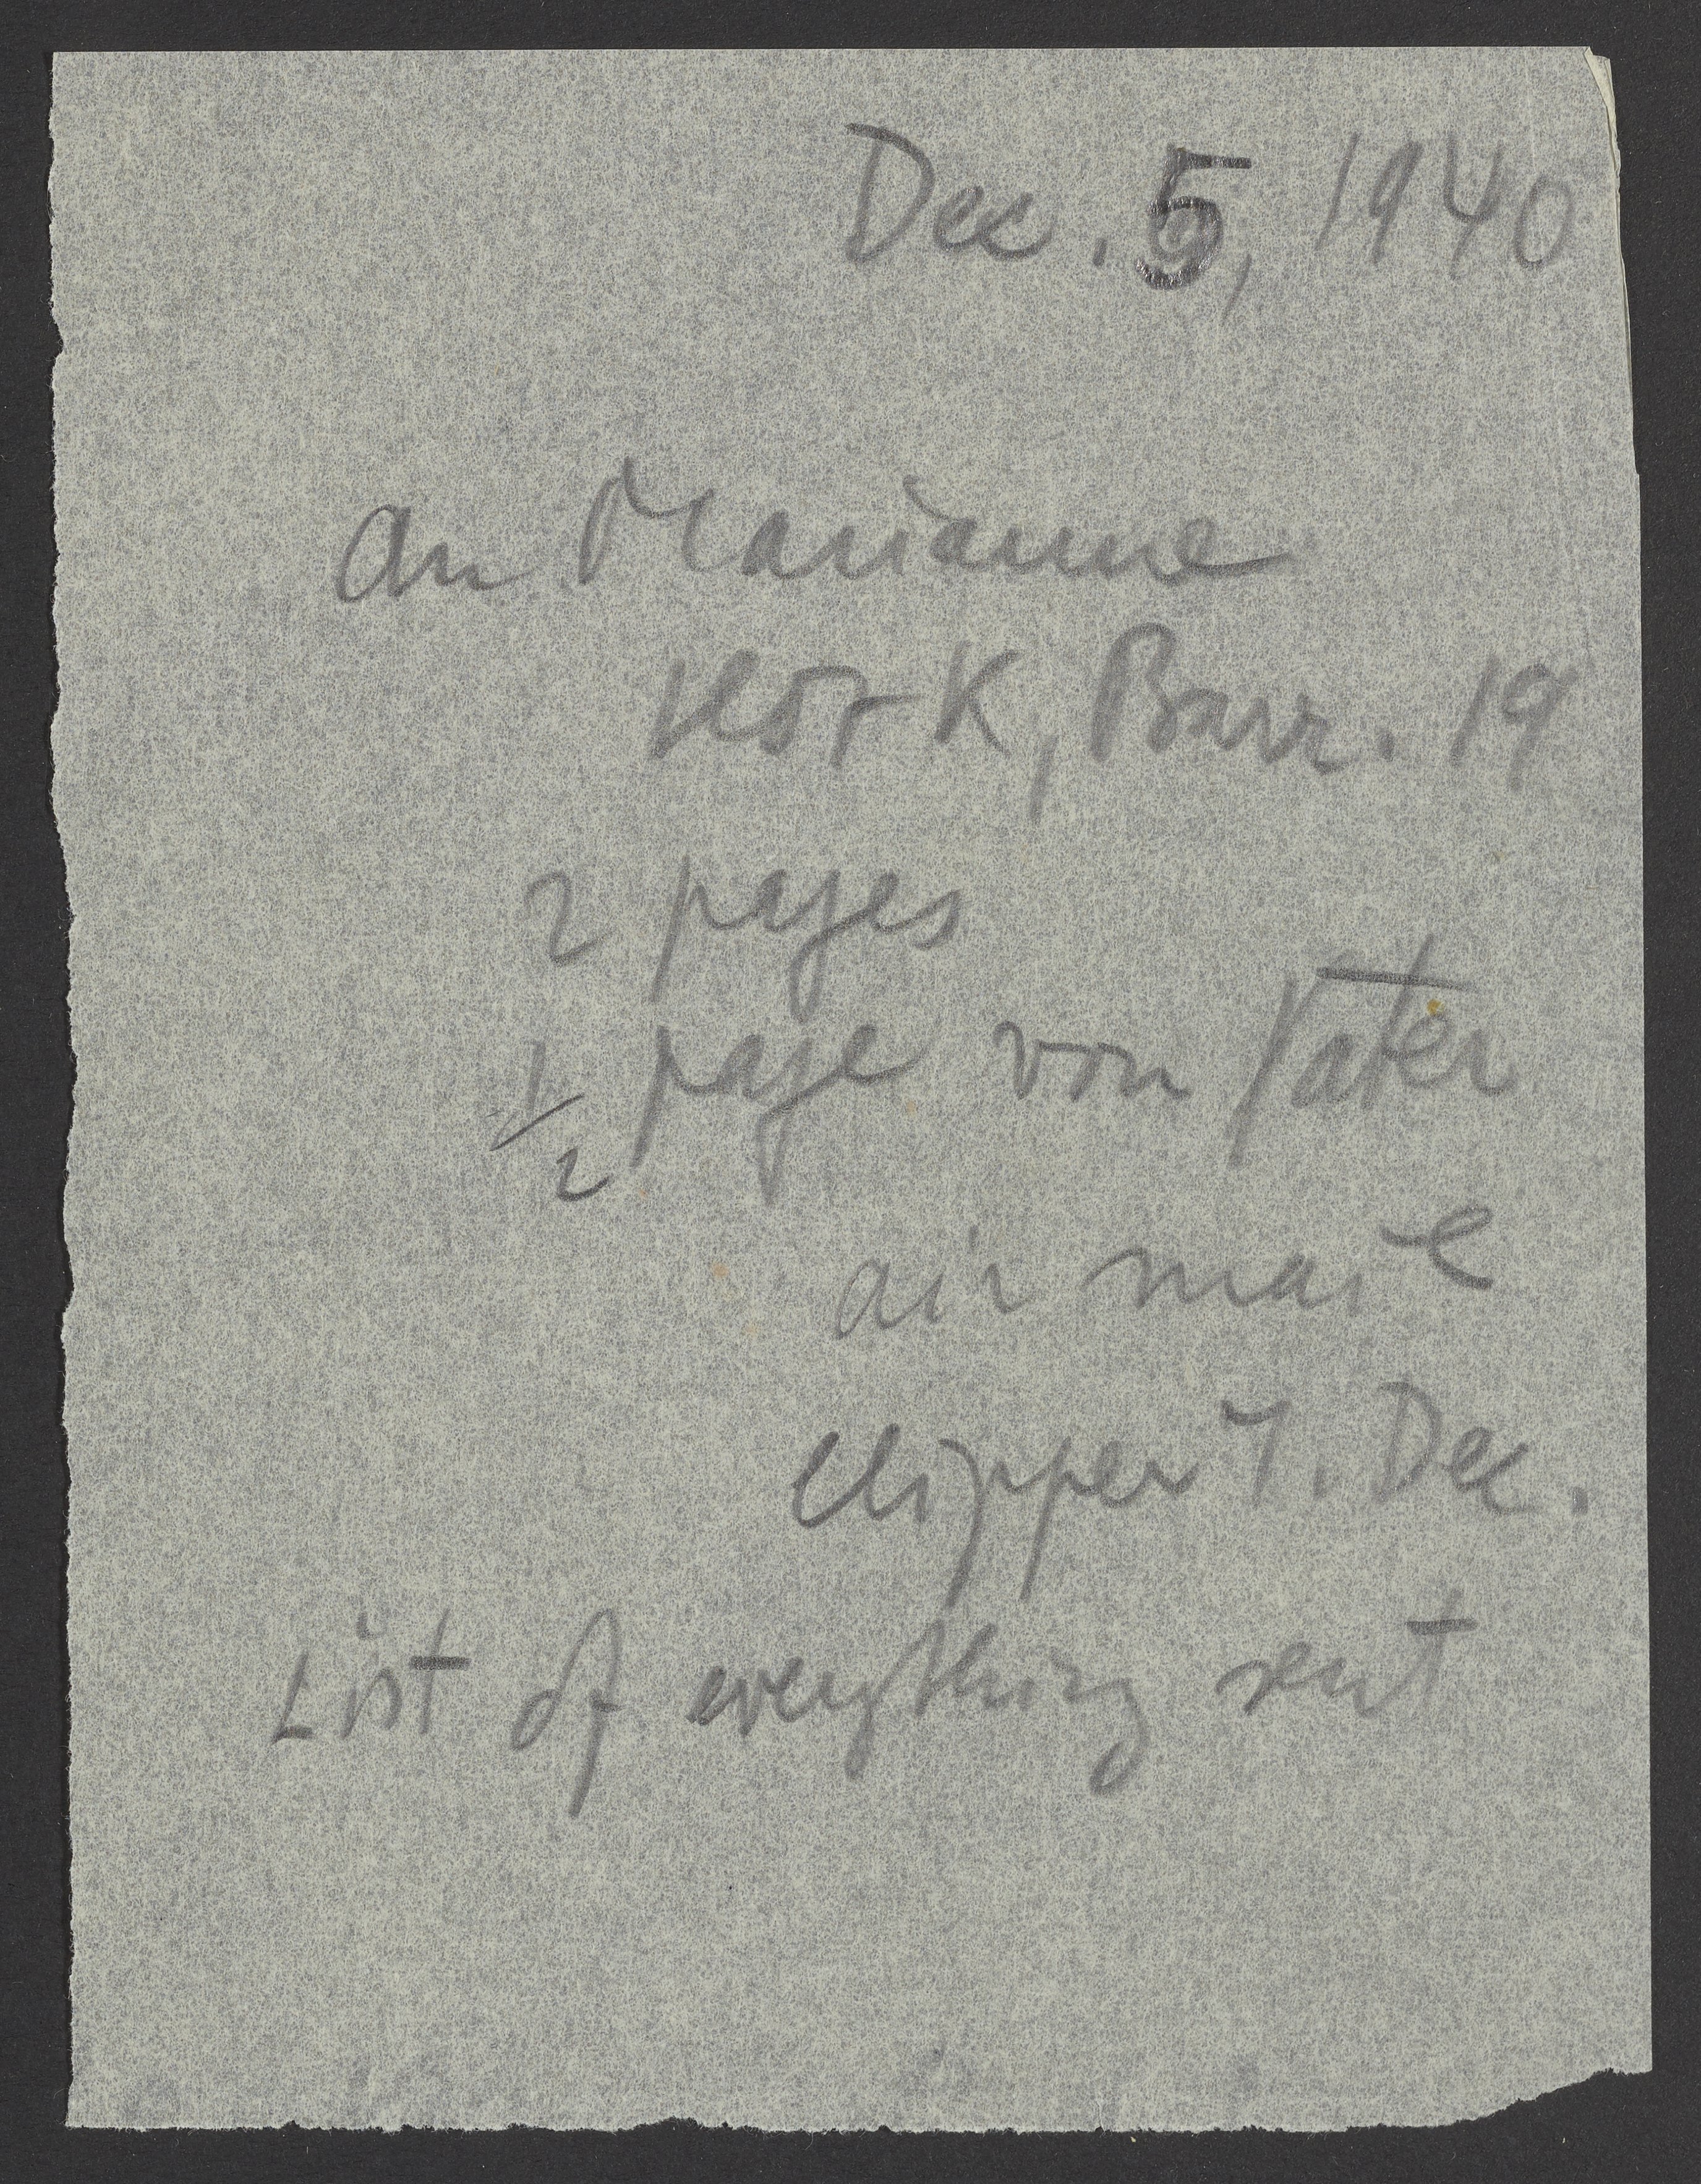 Dec. 5, 1940
An Marianne
Ilot K, Barr. 19
2 pages
1/2 page von Vater
air mail
Clipper 7. Dec.
List of everything sent